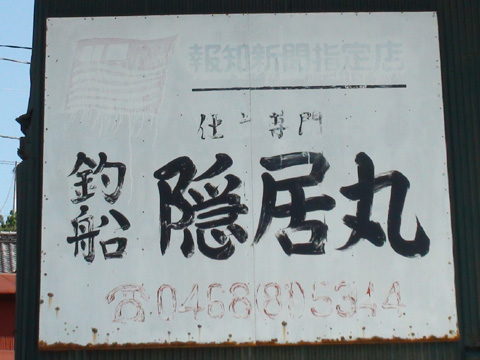 報知新聞指定店
仕立専門
釣船 隠居丸
☎0468(81)5344